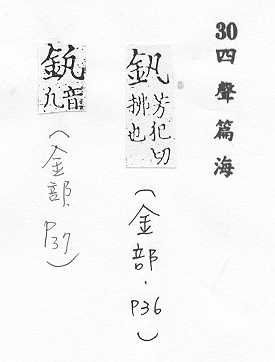 30四聲篇海
釩
芳犯切
拂也
(金部.P36)
音
(金部.P37)